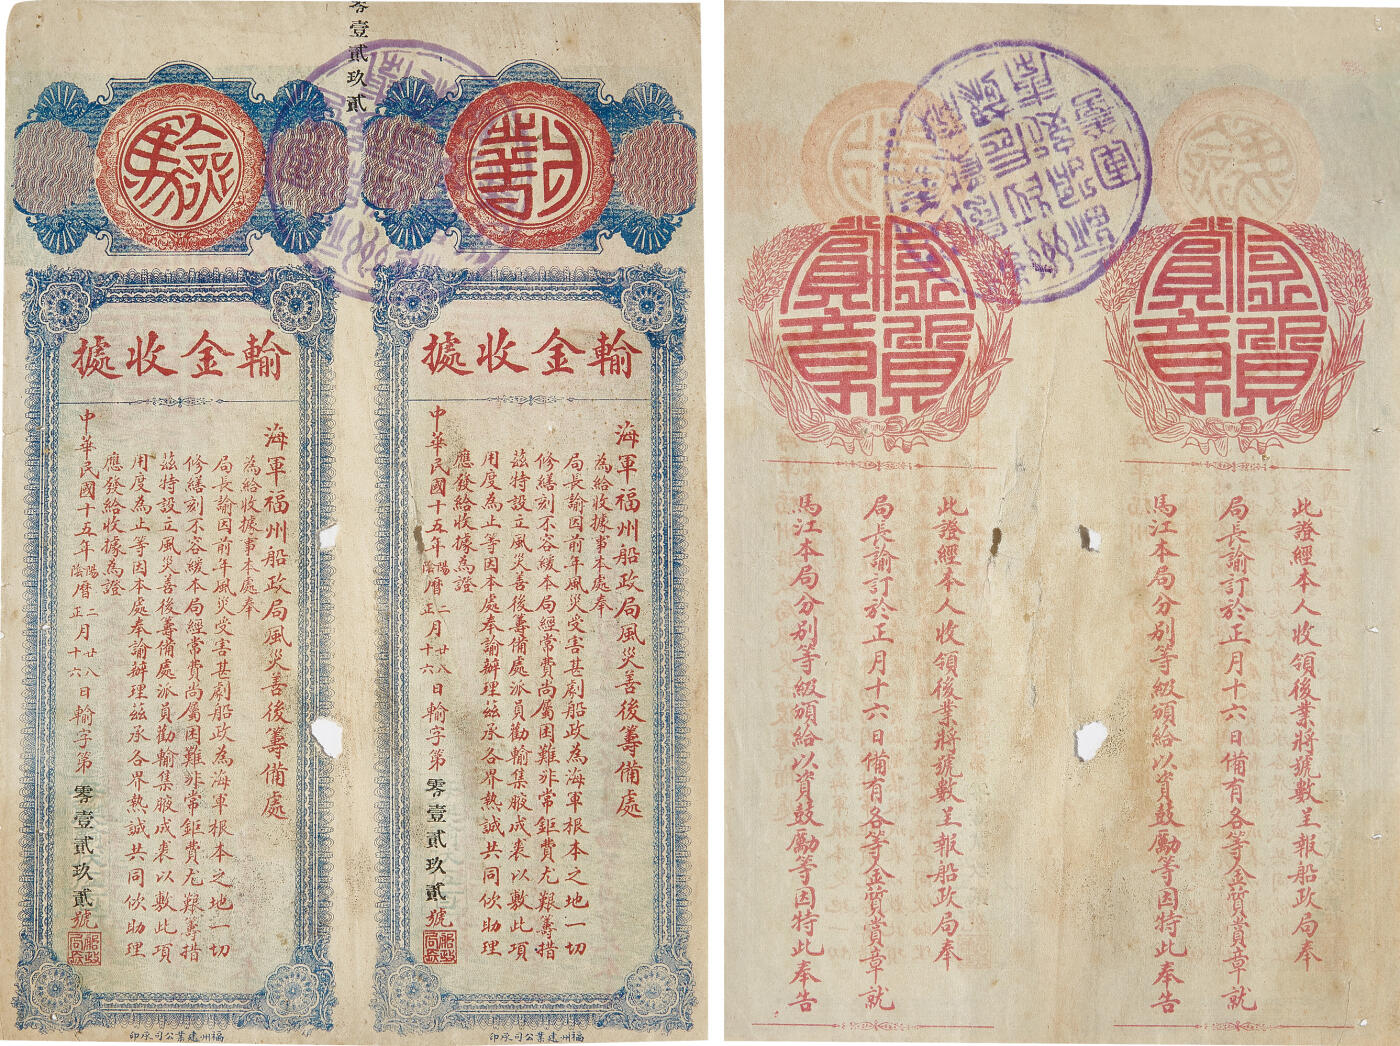 零壹貳玖貳
對
輸金收據
海軍福州船政局風災善後籌備處
為給收據事本處奉
局長諭因前年風災受害甚劇船政為海軍根本之地一切
修繕刻不容緩本局經常費尚屬困難非常鉅費尤艱籌措
茲特設立風災善後籌備處派員勸輸集腋成裘以敷此項
用度為止等因本處奉諭辦理茲承各界熱誠共同佽助理
應發給收據為證
中華民國十五年陽陰曆二正月廿八十六日輸字第零壹貳玖貳號
船政局長
福州建業公司承印
驗
輸金收據
海軍福州船政局風災善後籌備處
為給收據事本處奉
局長諭因前年風災受害甚劇船政為海軍根本之地一切
修繕刻不容緩本局經常費尚屬困難非常鉅費尤艱籌措
茲特設立風災善後籌備處派員勸輸集腋成裘以敷此項
用度為止等因本處奉諭辦理茲承各界熱誠共同佽助理
應發給收據為證
中華民國十五年陽陰曆二正月廿八十六日輸字第零壹貳玖貳號
船政局長
福州建業公司承印
金質賞章
此證經本人收領後業將號數呈報船政局奉
局長諭訂於正月十六日備有各等金質賞章就
馬江本局分別等級頒給以資鼓勵等因特此奉告
金質賞章
此證經本人收領後業將號數呈報船政局奉
局長諭訂於正月十六日備有各等金質賞章就
馬江本局分別等級頒給以資鼓勵等因特此奉告